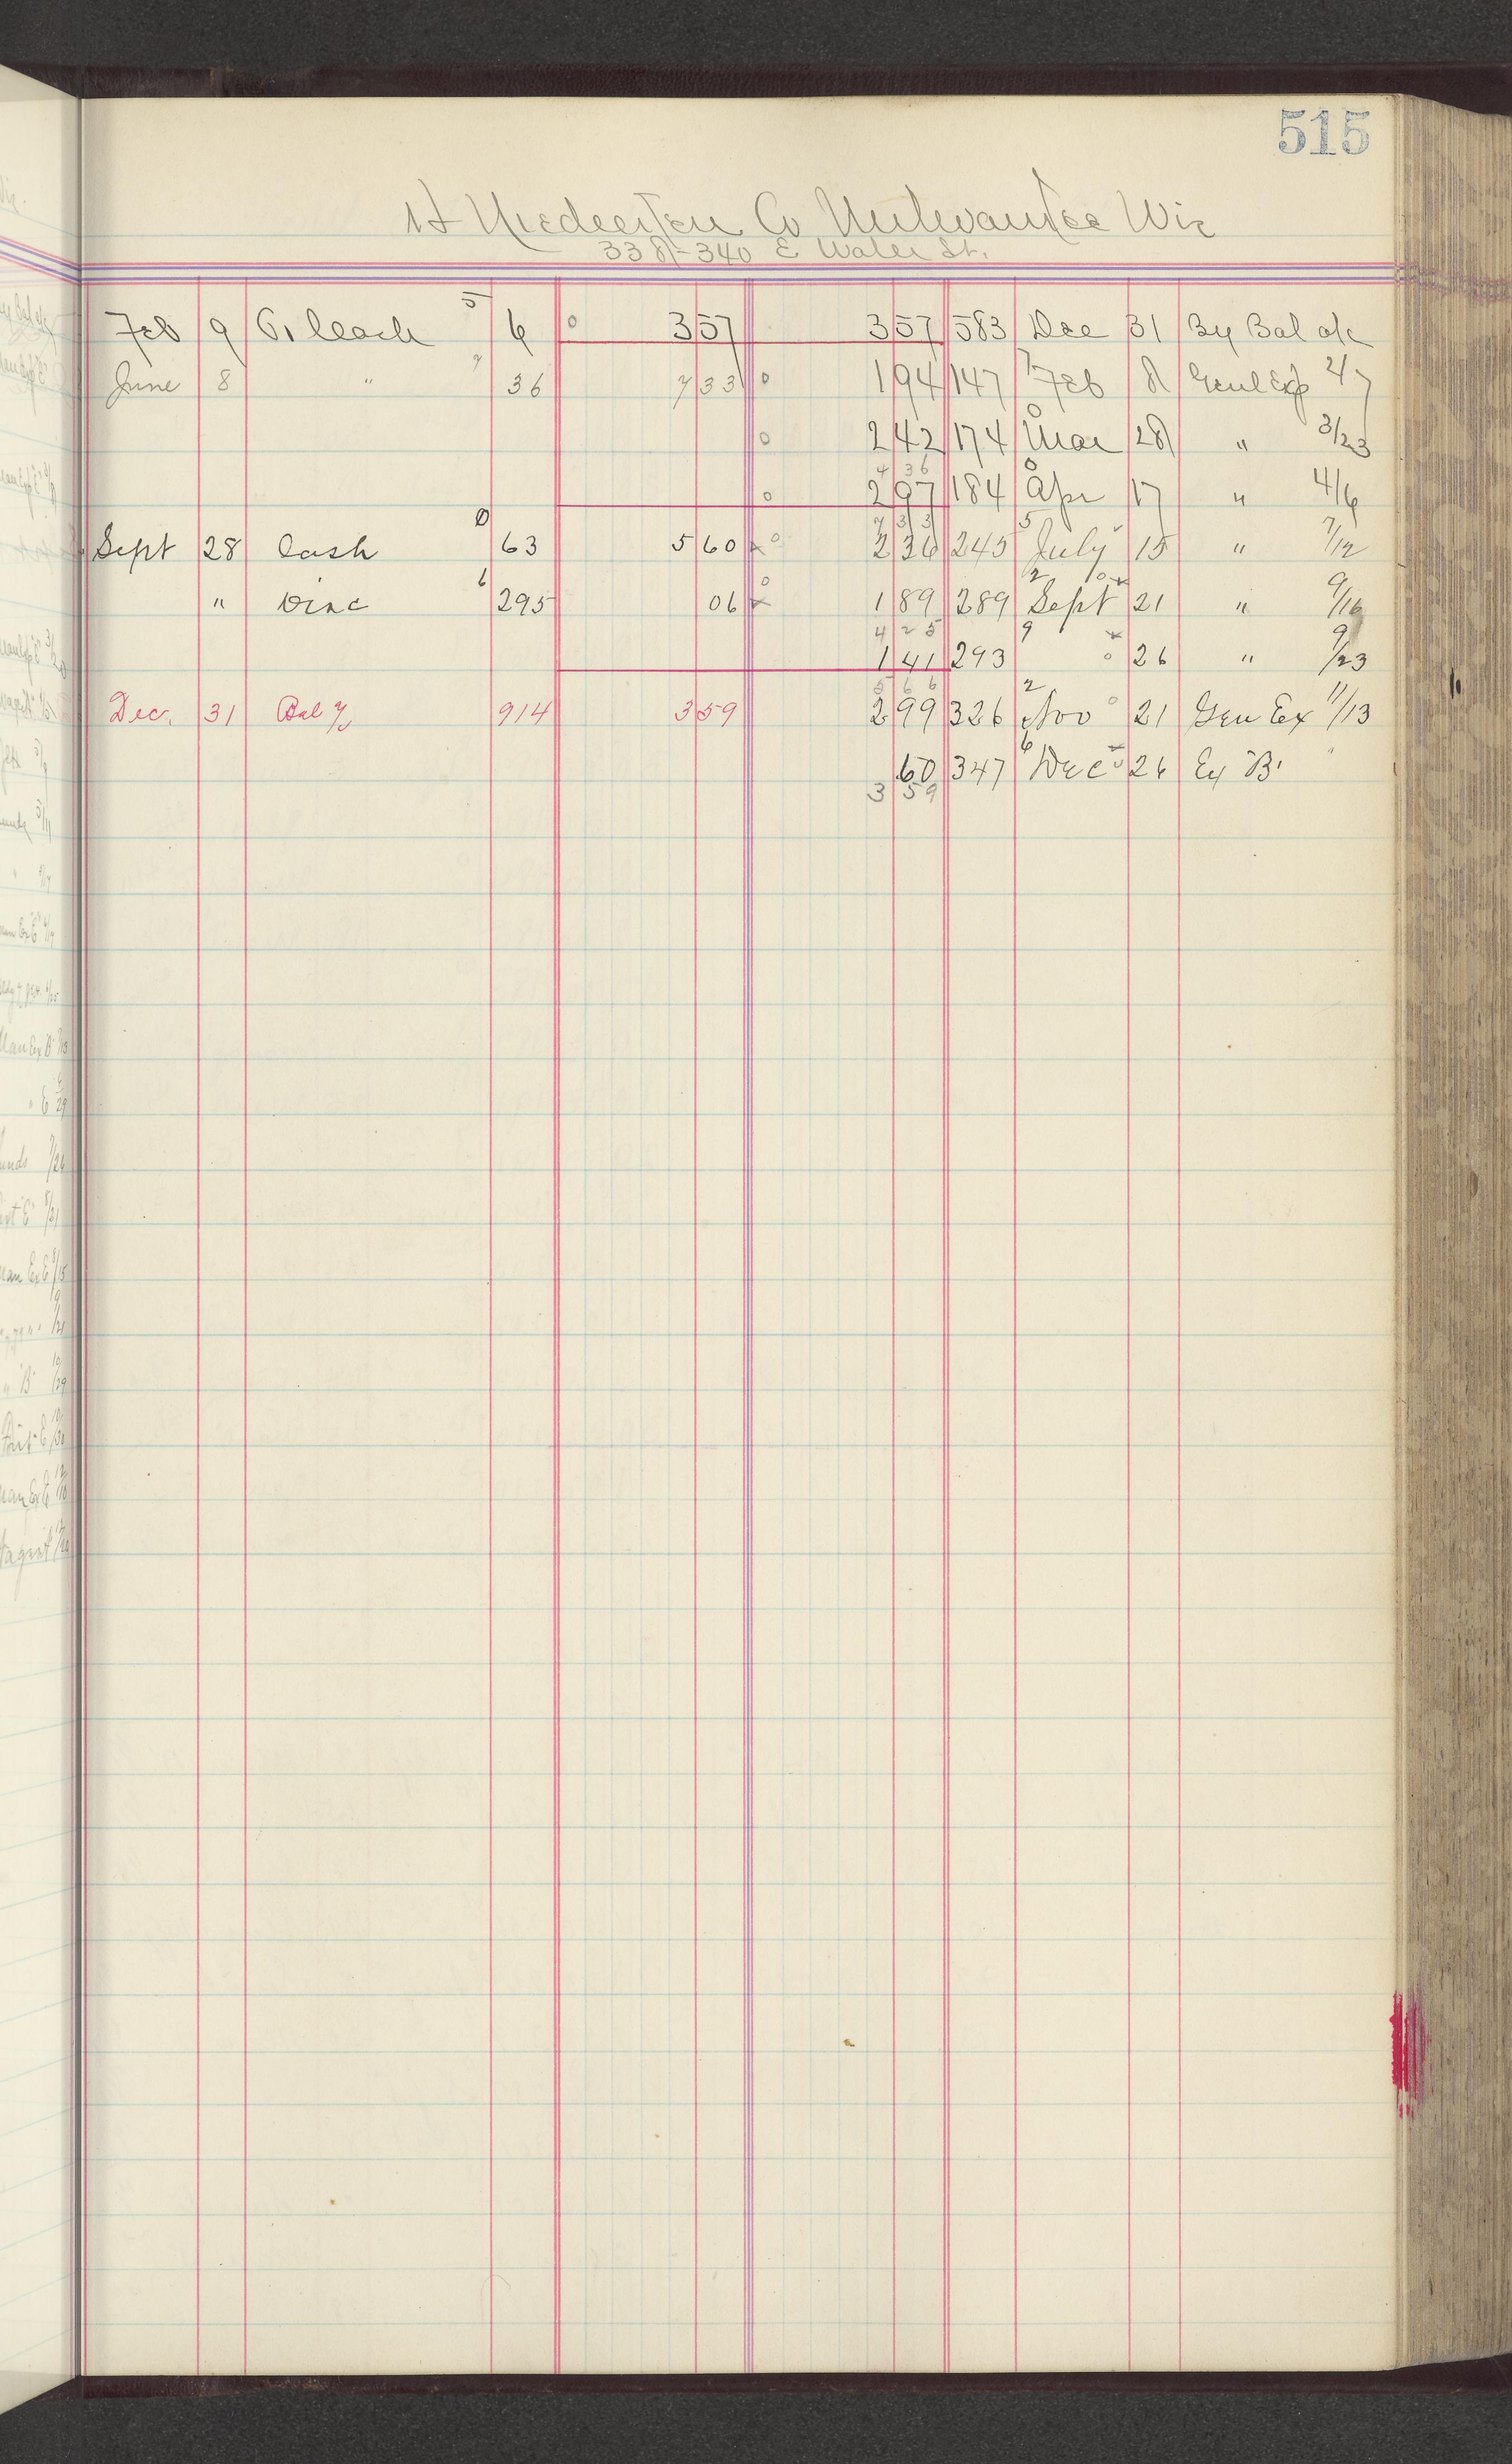 515
Co Milwaukee Wis
338-340 E Water St.
Feb 9 Cash 5 6 357 357 583 Dec 31 By Bal a/c
June 8 " 7 36 7 33 194 147 7 Feb 8 Genl Exp 2/7
242 174 0 Mar 28 " 3/23
4 36
297 184 0 Apr 17 " 4/6
7 33
Sept 28 Cash 0 63 5 60 236 245 5 July 15 " 7/12
" Disc 6 295 06 189 289 2 Sept 21 " 9/16
4 25
141 293 9 26 " 9/23
5 66
Dec. 31 Bal 914 3 59 299 326 2 Nov 21 Gen Ex 11/13
60 347 6 Dec 26 Ex "B" "
3 59